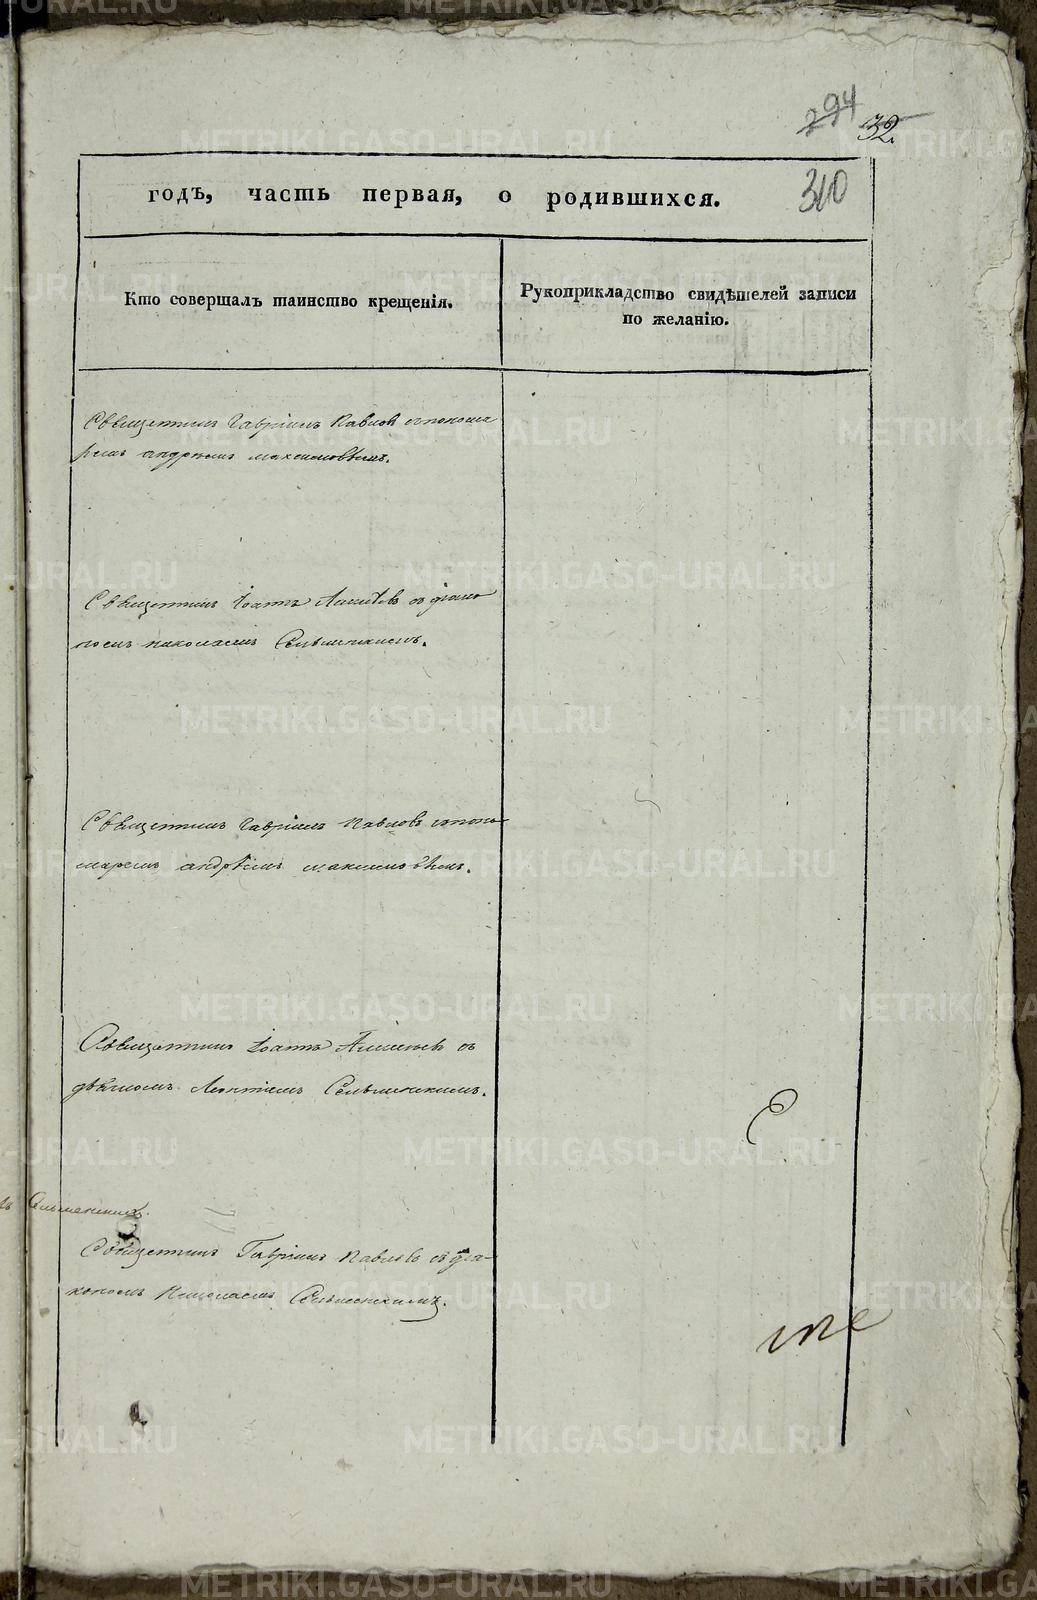 294
32.
310
годъ, часть первая, о родившихся.
Кто совершалъ таинство крещенія.
Рукоприкладство свидѣтелей записи
по желанію.
Священникъ Гавріилъ Павловъ съ понома
ремъ андреемъ максимовымъ.
Священникъ Іоаннъ съ діако
номъ николаемъ
Священникъ Гавріилъ Павловъ съ поно
маремъ андрѣемъ максимовымъ.
Священникъ Іоаннъ съ
дьячкомъ Леонтіемъ
Священникъ Гавріилъ Павловъ съ діа-
кономъ Николаемъ
METRIKI.GASO-URAL.RU